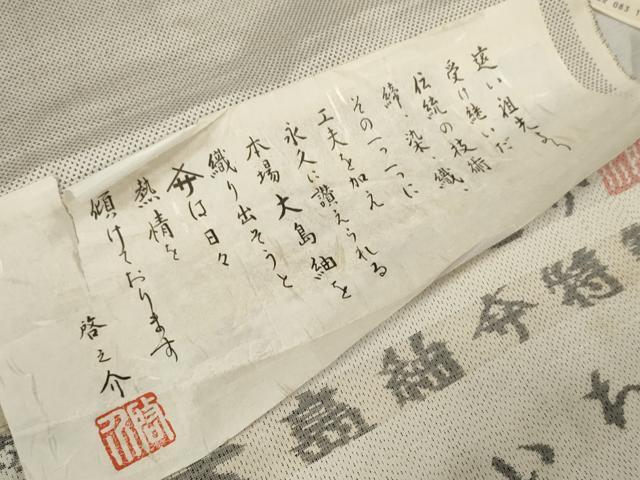 遠い祖先より
受け継いだ
伝統の技術
締・染・織、
その一つ一つに
工夫を加え
永久に讃えられる
本場大島紬を
織り出そうと
は日々
熱情を
傾けております
啓之介
島紬
特
いち
083 1